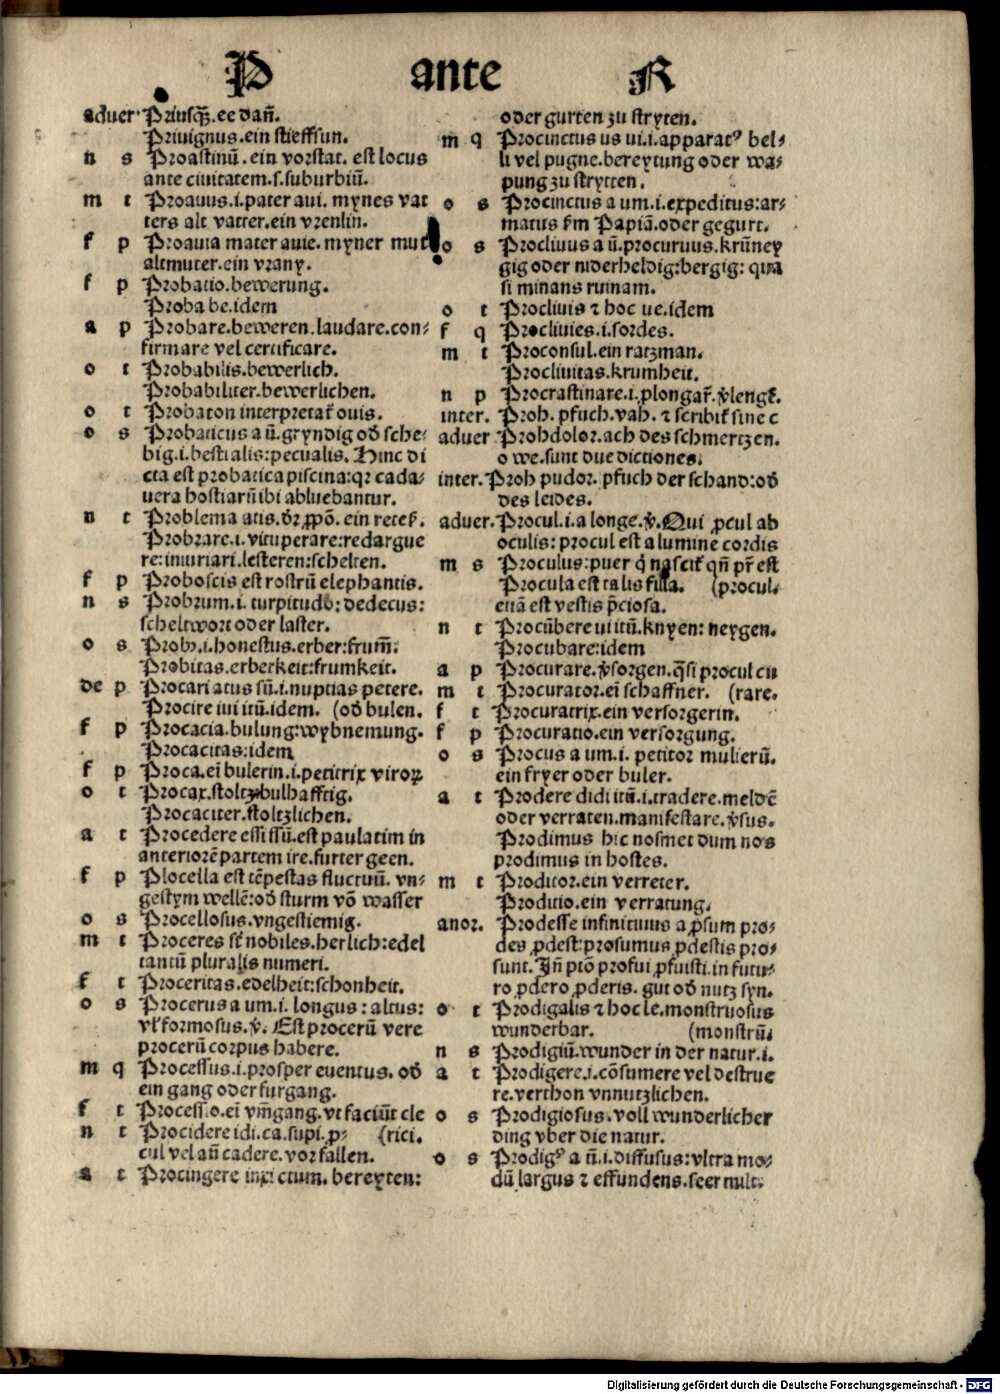 P ante R
aduer Priusqȝ. ee dañ.
Priuignus. ein stieffsun.
n s Proastinū. ein vorstat. est locus
ante ciuitatem. s. suburbiū.
m t Proauus. i. pater aui. mynes vat
ters alt vatter. ein vrenlin.
f p Proauia mater auie. myner mut
altmuter. ein vrany.
f p Probatio. bewerung.
Proba be. idem
a p Probare. beweren. laudare. con-
firmare vel certificare.
o t Probabilis. bewerlich.
Probabiliter. bewerlichen.
o t Probaton interpretat᷑ ouis.
o s Probaticus a ū. gryndig oď sche-
big. i. bestialis: pecualis. Hinc di
cta est probatica piscina: qꝛ cada-
uera hostiarū ibi abluebantur.
n t Problema atis.
Probrare. i. vituperare: redargue
re: iniuriari. lesteren: schelten.
f p Proboscis est rostrū elephantis.
n s Probrum. i. turpitudo: dedecus:
scheltwort oder laster.
o s Probꝰ. i. honestus. erber: frum̄.
Probitas. erberkeit: frumkeit.
de p Procari atus sū. i. nuptias petere.
Procire iui itū. idem. (oď bulen.
f p Procacia. bulung: wybnemung.
Procacitas: idem
f p Proca. eī bulerin. i. petitrix viroꝝ
o t Procax. stoltz bulhafftig.
Procaciter. stoltzlichen.
a t Procedere essi ssū. est paulatim in
anteriorē partem ire. furter geen.
f p Plocella est tēpestas fluctuū. vn-
gestym wellē: oď sturm vō wasser
o s Procellosus. vngestiemig.
m t Proceres sᷣt nobiles. herlich: edel
tantū pluralis numeri.
f t Proceritas. edelheit: schonheit.
o s Procerus a um. i. longus: altus:
vl᷑ formosus. ꟟. Est procerū vere
procerū corpus habere.
m q Processus. i. prosper euentus. oď
ein gang oder furgang.
f t Processio. eī vm̄gang. vt faciūt cle
n t Procidere idi. ca. supi. ꝓ- (rici.
cul vel añ cadere. vor fallen.
a t Procingere inxi ctum. bereyten:
oder gurten zu stryten.
m q Procinctus us ui. i. apparatꝰ bel-
li vel pugne. bereytung oder wa-
pung zu strytten.
o s Procinctus a um. i. expeditus: ar-
matus ẜm Papiā. oder gegurt.
o s Procliuus a ū. procuruus. krūney
gig oder niderheldig: bergig: qua
si minans ruinam.
o t Procliuis ⁊ hoc ue. idem
f q Procliuies. i. sordes.
m t Proconsul. ein ratzman.
Procliuitas. krumheit.
n p Procrastinare. i. ꝓlongar᷑. ꟟lengē.
inter. Proh. pfuch. vah. ⁊ scribit᷑ sine c
aduer Prohdolor. ach des schmertzen.
o we. sunt due dictiones.
inter. Proh pudor. pfuch der schand: oď
des leides.
aduer. Procul. i. a longe. ꟟. Qui ꝓcul ab
oculis: procul est a lumine cordis
m s Proculus: puer qͥ nascit᷑ qñ pr̄ est
Procula est talis filia. (procul.
etiā est vestis p̄ciosa.
n t Procūbere ui itū. knyen: neygen.
Procubare: idem
a p Procurare. ꟟sorgen. q̄si procul cu
m t Procurator. eī schaffner. (rare.
f t Procuratrix. ein versorgerin.
f p Procuratio. ein versorgung.
o s Procus a um. i. petitor mulierū.
ein fryer oder buler.
a t Prodere didi itū. i. tradere. meldē
oder verraten. manifestare. ꟟sus.
Prodimus hic nosmet dum nos
prodimus in hostes.
m t Proditor. ein verreter.
Proditio. ein verratung.
anor. Prodesse infinitiuus a ꝓsum pro-
des ꝓdest: prosumus ꝓdestis pro-
sunt. Iñ p̄tō profui ꝓfuisti. in futu-
ro ꝓdero ꝓderis. gut oď nutz syn.
o t Prodigalis ⁊ hoc le. monstruosus
wunderbar. (monstrū.
n s Prodigiū. wunder in der natur. i.
a t Prodigere. i. cōsumere vel destrue
re. verthon vnnutzlichen.
o s Prodigiosus. voll wunderlicher
ding vber die natur.
o s Prodigꝰ a ū. i. diffusus: vltra mo-
dū largus ⁊ effundens. seer milt.
Digitalisierung gefördert durch die Deutsche Forschungsgemeinschaft - DFG